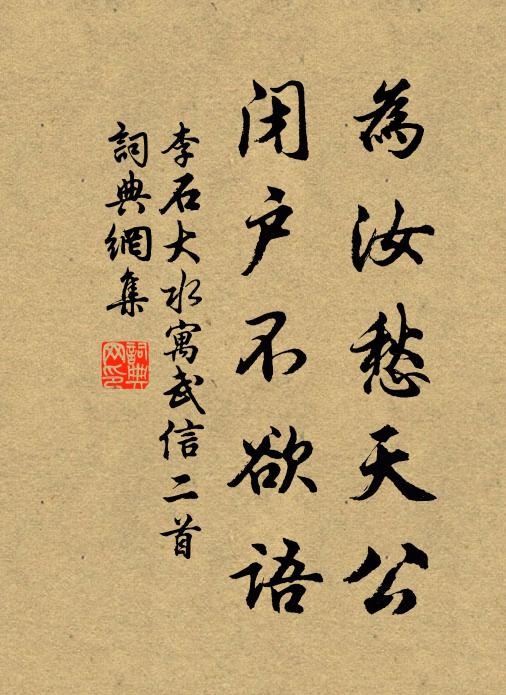 為汝愁天公
闭户不欲语
李石大水寓武信二首
詞典網集
詞典網印